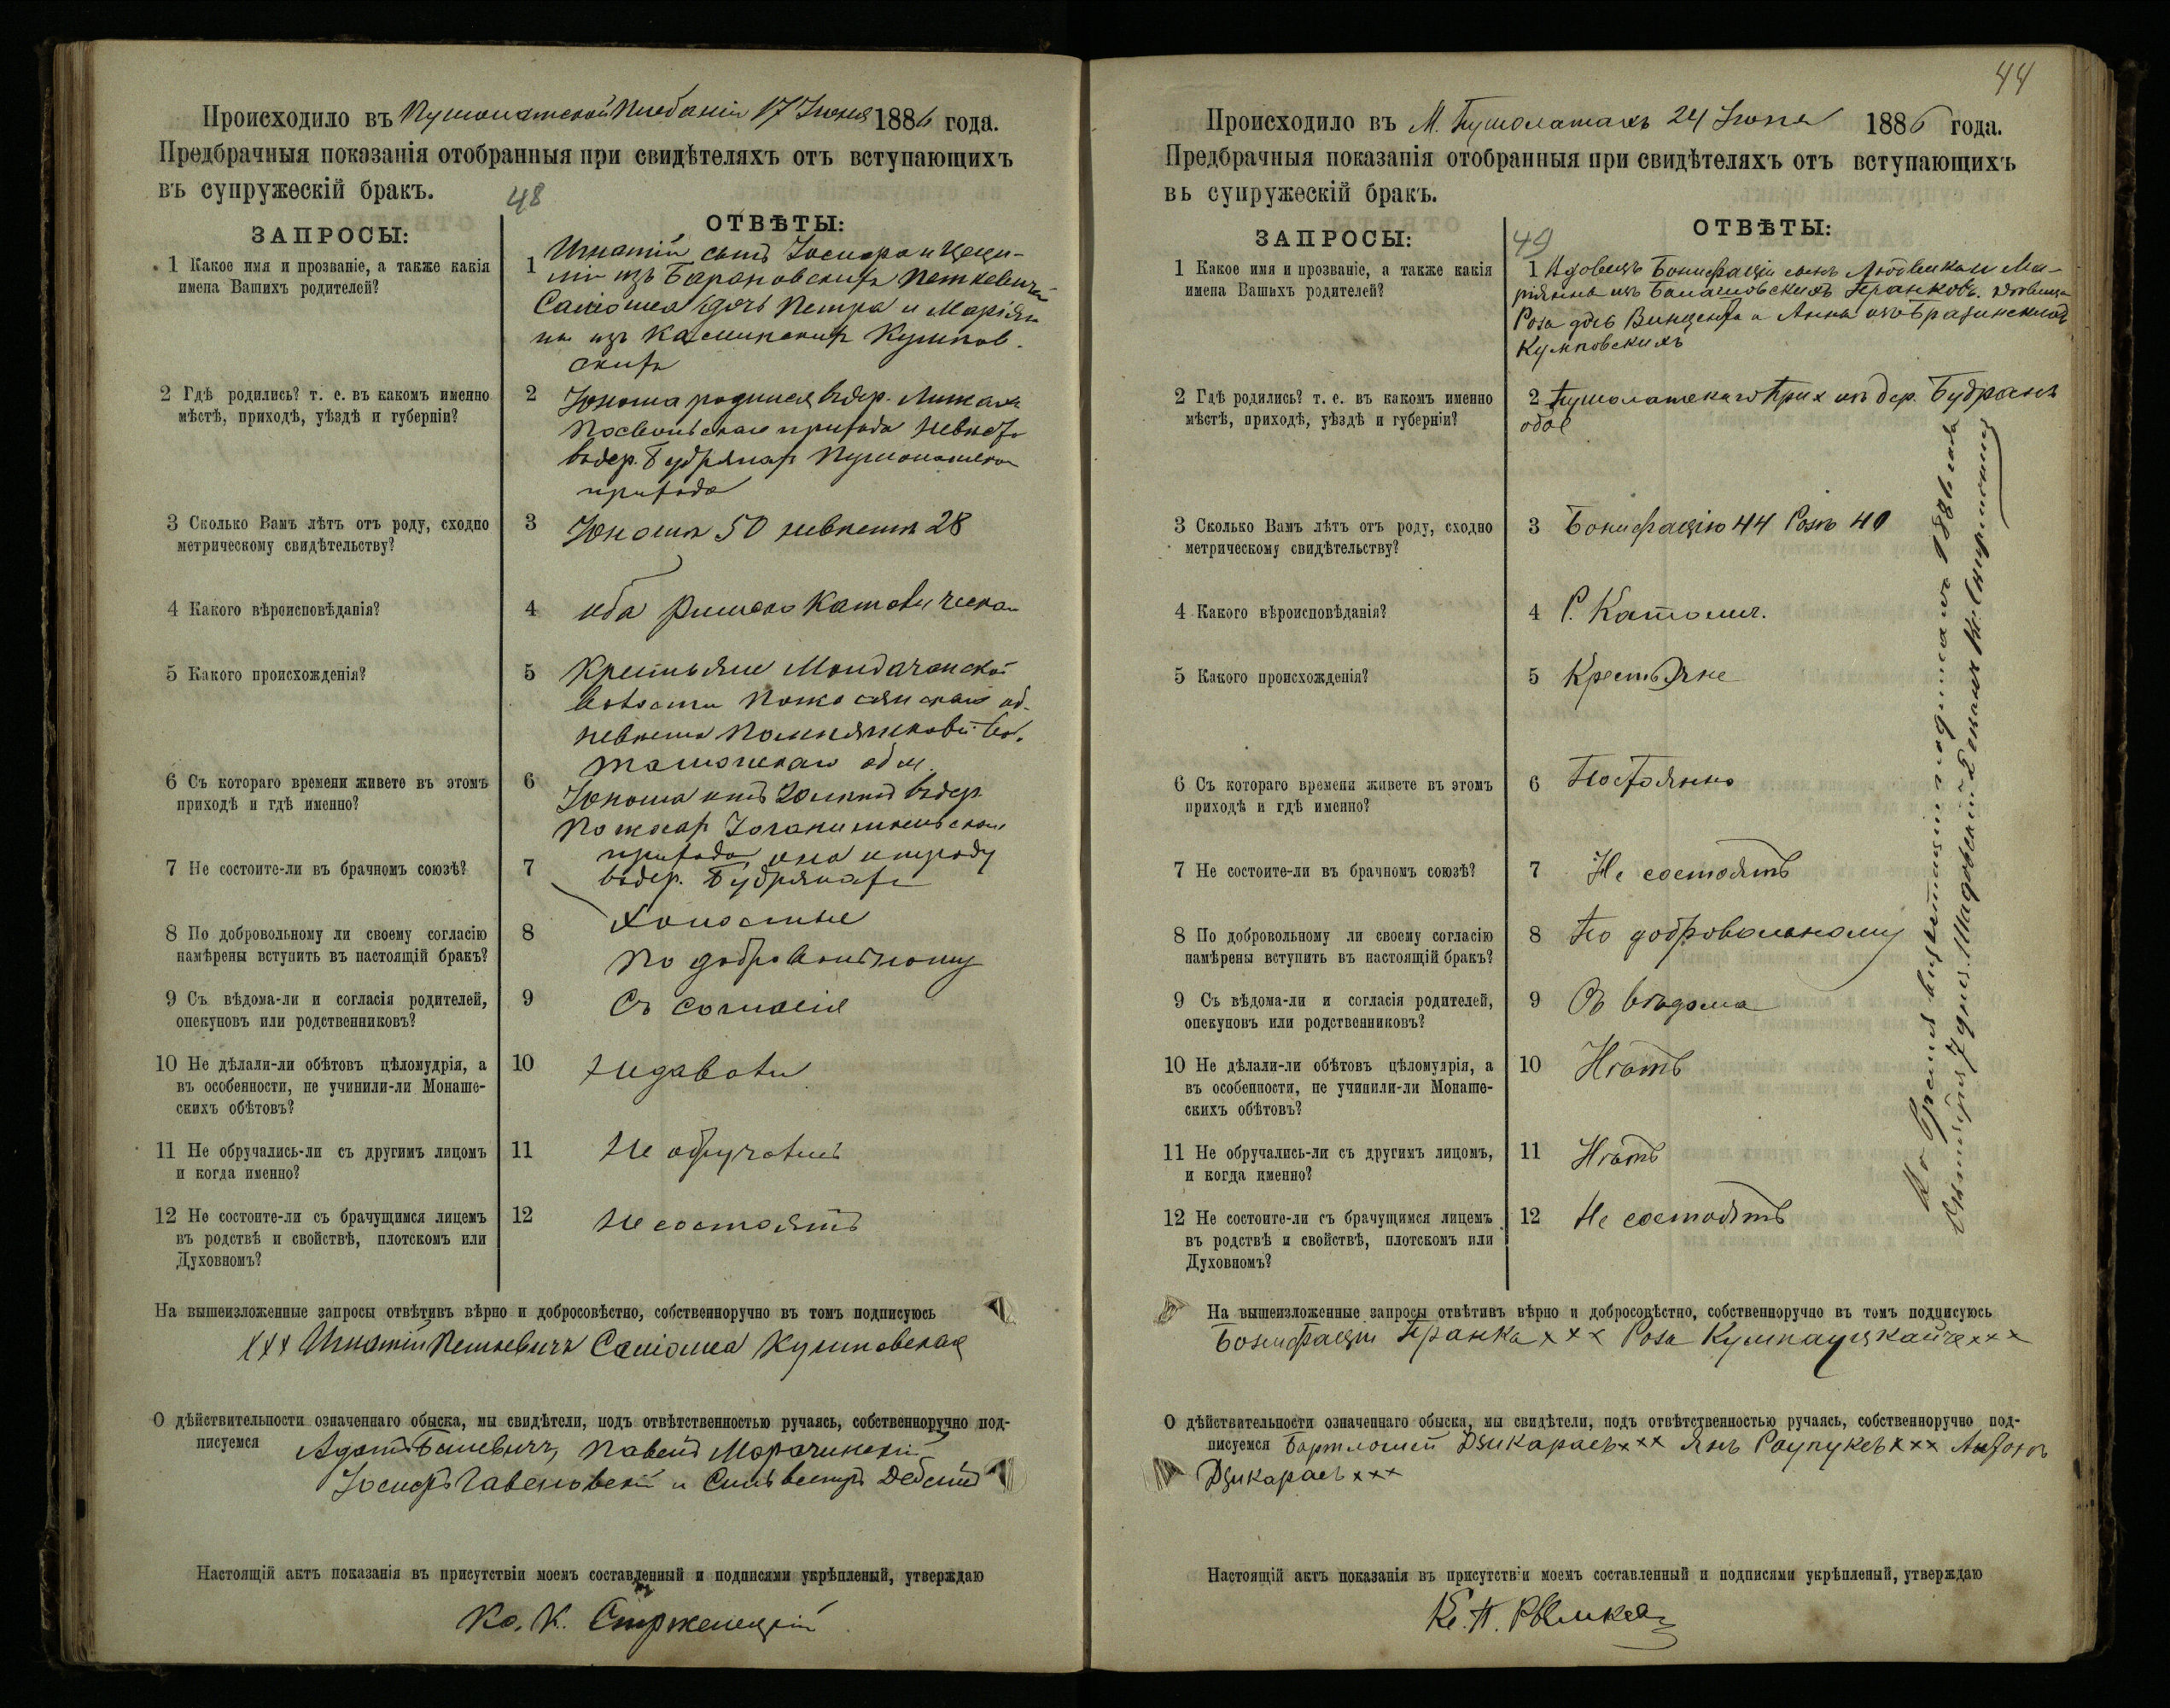 Происходило въ Пушолатской Плебаніи 17 Іюня 1886 года.
Предбрачныя показанія отобранныя при свидѣтеляхъ отъ вступающихъ
въ супружескій бракъ.
48
ЗАПРОСЫ:
ОТВѢТЫ:
1 Какое имя и прозваніе, а также какія
имена Вашихъ родителей?
1 Игнатій сынъ Іосифа и Цеци-
ліи изъ Барановскихъ Петкевичъ
Саломея дочь Петра и Маріян
ны изъ Каминскихъ Кумпов-
скихъ
2 Гдѣ родились? т. е. въ какомъ именно
мѣстѣ, приходѣ, уѣздѣ и губерніи?
2 Юноша родился въ дер.
Посвольскаго прихода невѣста
въ дер. Будрянахъ Пушолатскаго
прихода
3 Сколько Вамъ лѣтъ отъ роду, сходно
метрическому свидѣтельству?
3 Юношѣ 50 невѣстѣ 28
4 Какого вѣроисповѣданія?
4 оба Римско Католическаго
5 Какого происхожденія?
5 Крестьяне
волости об.
невѣста вол.
общ.
6 Съ котораго времени живете въ этомъ
приходѣ и гдѣ именно?
6 Юноша въ дер.
прихода, она
въ дер. Будрянахъ
7 Не состоите-ли въ брачномъ союзѣ?
7 Холостые
8 По добровольному ли своему согласію
намѣрены вступить въ настоящій бракъ?
8 По добровольному
9 Съ вѣдома-ли и согласія родителей,
опекуновъ или родственниковъ?
9 Съ согласія
10 Не дѣлали-ли обѣтовъ цѣломудрія, а
въ особенности, не учинили-ли Монаше-
скихъ обѣтовъ?
10 Недавали
11 Не обручались-ли съ другимъ лицомъ
и когда именно?
11 Не обручались
12 Не состоите-ли съ брачущимся лицемъ
въ родствѣ и свойствѣ, плотскомъ или
Духовномъ?
12 Не состоятъ
На вышеизложенные запросы отвѣтивъ вѣрно и добросовѣстно, собственноручно въ томъ подписуюсь
xxx Игнатій Петкевичъ Саломея Кумповская
О дѣйствительности означеннаго обыска, мы свидѣтели, подъ отвѣтственностью ручаясь, собственноручно под-
писуемся Адамъ Павелъ
Іосифъ и Сильвестръ
Настоящій актъ показанія въ присутствіи моемъ составленный и подписями укрѣпленый, утверждаю
Кс. К. Стржелецкій
44
Происходило въ М. Пушолатахъ 24 Іюня 1886 года.
Предбрачныя показанія отобранныя при свидѣтеляхъ отъ вступающихъ
въ супружескій бракъ.
49
ЗАПРОСЫ:
ОТВѢТЫ:
1 Какое имя и прозваніе, а также какія
имена Вашихъ родителей?
1 Вдовецъ Бонифацій сынъ Людвика и Ма-
ріянны изъ Пранковъ.
Роза дочь Винцента и Анны изъ
Кумповскихъ
2 Гдѣ родились? т. е. въ какомъ именно
мѣстѣ, приходѣ, уѣздѣ и губерніи?
2 Пушолатскаго Прих изъ дер. Будранъ
обое
3 Сколько Вамъ лѣтъ отъ роду, сходно
метрическому свидѣтельству?
3 Бонифацію 44 Розѣ 40
4 Какого вѣроисповѣданія?
4 Р. Католич.
5 Какого происхожденія?
5 Крестьяне
6 Съ котораго времени живете въ этомъ
приходѣ и гдѣ именно?
6 Постоянно
7 Не состоите-ли въ брачномъ союзѣ?
7 Не состоятъ
8 По добровольному ли своему согласію
намѣрены вступить въ настоящій бракъ?
8 По добровольному
9 Съ вѣдома-ли и согласія родителей,
опекуновъ или родственниковъ?
9 Съ вѣдома
10 Не дѣлали-ли обѣтовъ цѣломудрія, а
въ особенности, не учинили-ли Монаше-
скихъ обѣтовъ?
10 Нѣтъ
11 Не обручались-ли съ другимъ лицомъ,
и когда именно?
11 Нѣтъ
12 Не состоите-ли съ брачущимся лицемъ
въ родствѣ и свойствѣ, плотскомъ или
Духовномъ?
12 Не состоятъ
Во время визитаціи 1886 года
Октября 7 дня. Деканъ Кс.
На вышеизложенные запросы отвѣтивъ вѣрно и добросовѣстно, собственноручно въ томъ подписуюсь
Бонифацій Пранка xxx Роза Кумпауцкайте xxx
О дѣйствительности означеннаго обыска, мы свидѣтели, подъ отвѣтственностью ручаясь, собственноручно под-
писуемся Бартломей Дзикарасъ xxx Янъ Раупуксъ xxx Антонъ
Дзикарасъ xxx
Настоящій актъ показанія въ присутствіи моемъ составленный и подписями укрѣпленый, утверждаю
Кс. П.